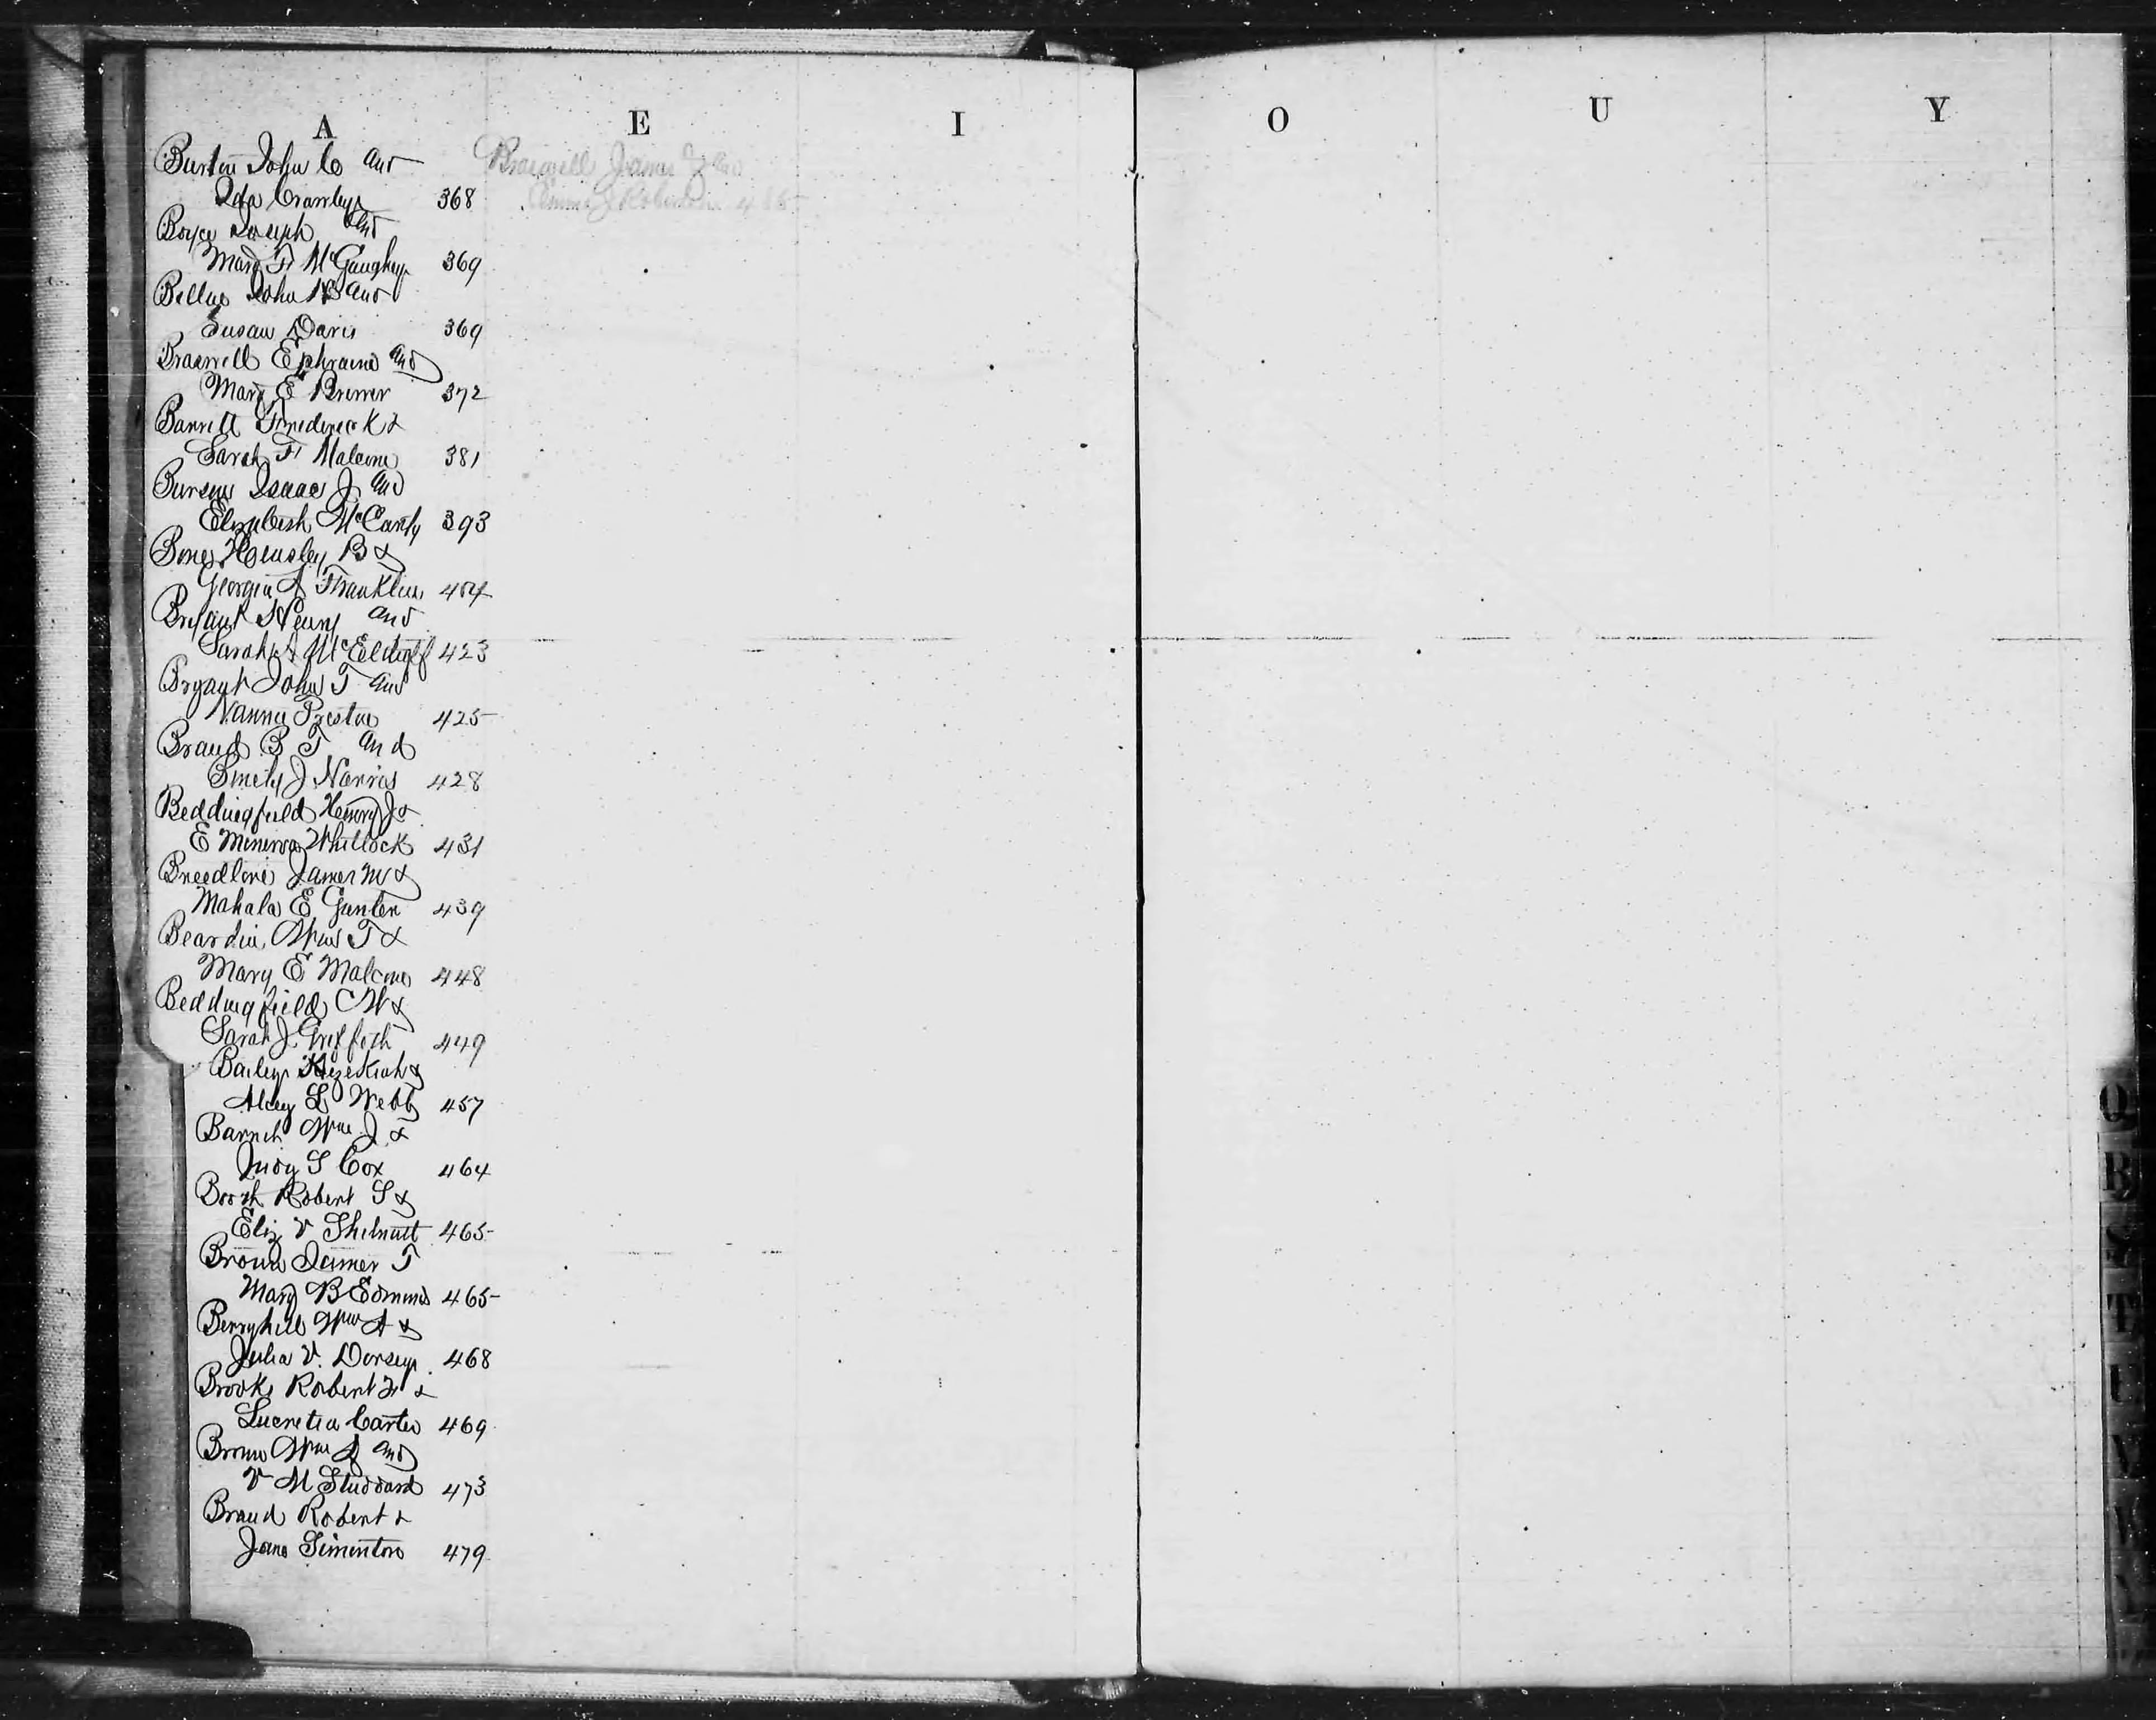 A E I O U Y
Burton John C and
Ida Crawley 368
Boyce Joseph and
Mary F McGaughey 369
Bellue John B and
Susan Davis 369
Braswell Ephraim and
Mary E Brewer 372
Barrett Frederick &
Sarah F Malcom 381
Burson Isaac J and
Elizabeth McCarty 393
Bones Hensley B &
Georgia A Franklin 404
Bryant Henry and
Sarah A McElduff 423
Bryant John T and
Nannie Preston 425
Braud B T and
Emely J Norris 428
Beddingfield Henry J &
E Minerva Whitlock 431
Breedlove James M &
Mahala E Gunter 439
Beardin Wm T &
Mary E Malcom 448
Beddingfield C W &
Sarah J Griffeth 449
Bailey Hezekiah &
Alcey L Webb 457
Barrett Wm J &
Judy S Cox 464
Booth Robert S &
Eliz V Shelnutt 465
Brown James T
Mary B Edmonds 465
Berryhill Wm A &
Julia V. Dorsey 468
Brooks Robert F &
Lucretia Carter 469
Brown Wm J and
V M Studdard 473
Braud Robert &
Jane Simenton 479
Braswell James J and
J Robertson
Q
R
S
T
U
V
W